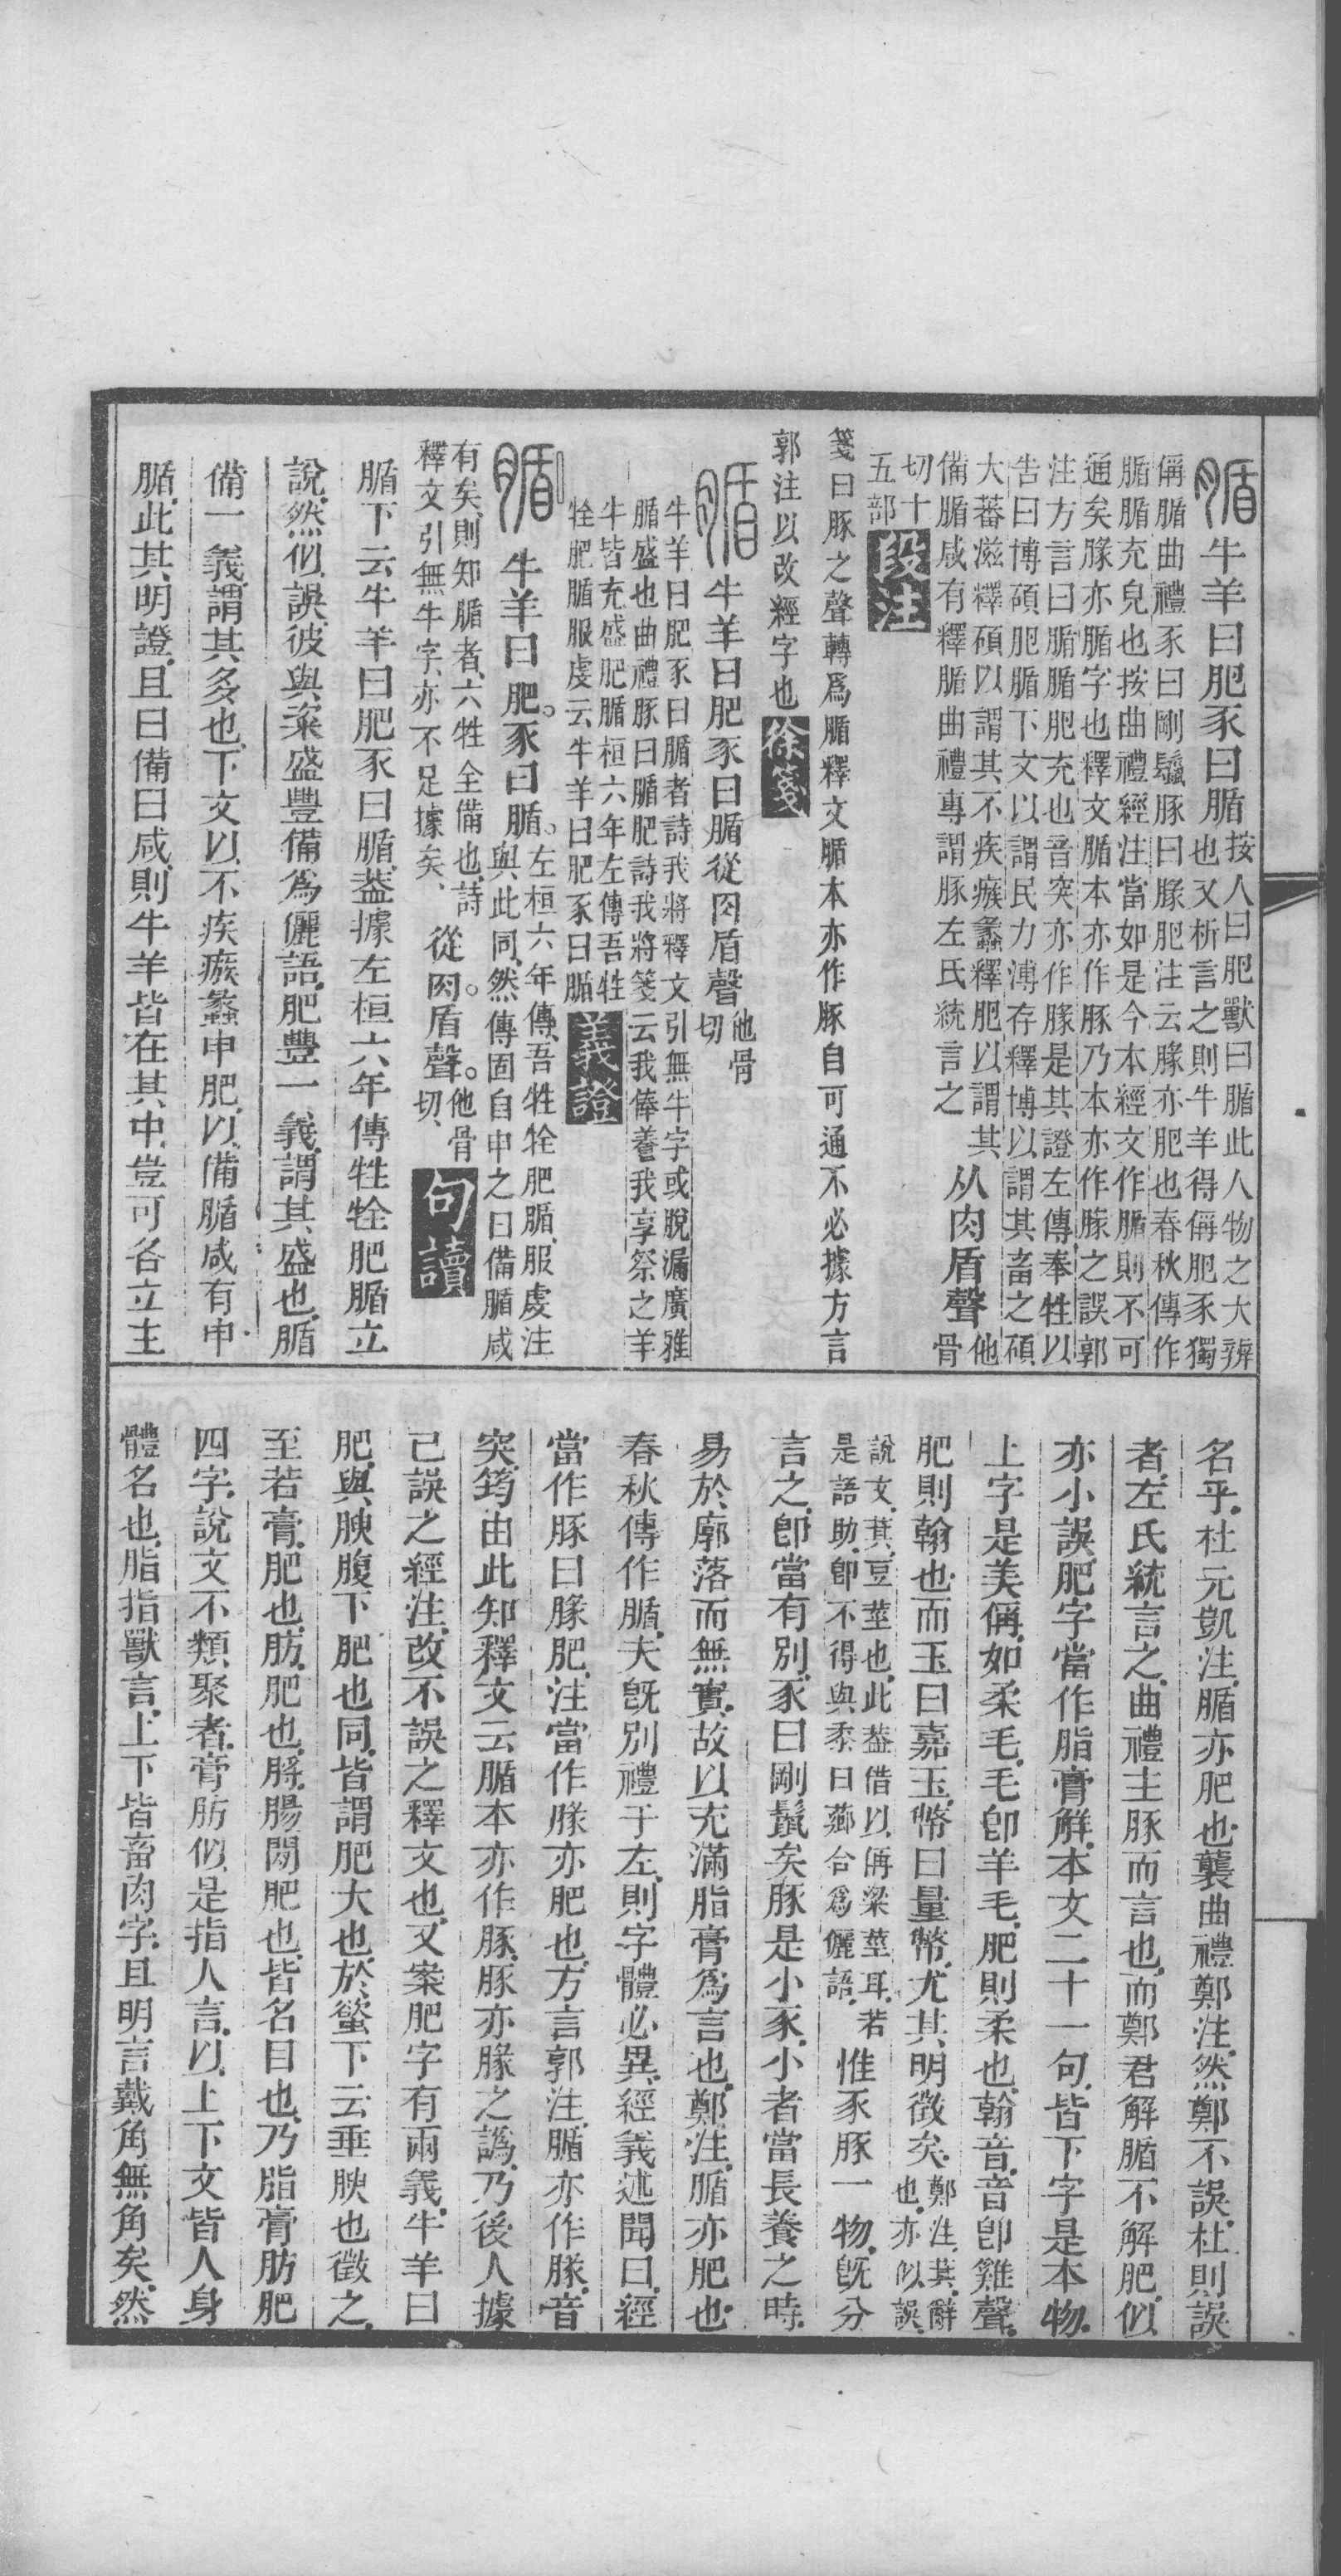 腯牛羊曰肥豕曰腯
按人曰肥獸曰腯此人物之大辨
也又析言之則牛羊得偁肥豕獨
偁腯曲禮豕曰剛鬛豚曰腞肥注云腞亦肥也春秋傳作
腯腯充皃也按曲禮經注當如是今本經文作腯則不可
通矣腞亦腯字也釋文腯本亦作豚乃本亦作腞之誤郭
注方言曰腯腯肥充也音突亦作腞是其證左傳奉牲以
告曰博碩肥腯下文以謂民力溥存釋博以謂其畜之碩
大蕃滋釋碩以謂其不疾瘯蠡釋肥以謂其
備腯咸有釋腯曲禮專謂豚左氏統言之
从肉盾聲
他
骨
切十
五部
段注
箋曰豚之聲轉爲腯釋文腯本亦作豚自可通不必據方言
郭注以改經字也
徐箋
腯牛羊曰肥豕曰腯從肉盾聲
他骨
切
牛羊曰肥豕曰腯者詩我將釋文引無牛字或脫漏廣雅
腯盛也曲禮豚曰腯肥詩我將箋云我俸養我享祭之羊
牛皆充盛肥腯桓六年左傳吾牲
牷肥腯服虔云牛羊曰肥豕曰腯
義證
腯牛羊曰肥。豕曰腯。
左桓六年傳、吾牲牷肥腯、服虔注
與此同、然傳固自申之曰備腯咸
有矣、則知腯者、六牲全備也、詩
釋文引無牛字、亦不足據矣、
從肉。盾聲。
他骨
切、
句讀
腯下云牛羊曰肥豕曰腯、葢據左桓六年傳牲牷肥腯立
說、然似誤、彼與粢盛豐備爲儷語、肥豐一義、謂其盛也、腯
備一義、謂其多也、下文以不疾瘯蠡申肥、以備腯咸有申
腯、此其明證、且曰備曰咸、則牛羊皆在其中、豈可各立主
名乎、杜元凱注、腯亦肥也、襲曲禮鄭注、然鄭不誤、杜則誤
者、左氏統言之、曲禮主豚而言也、而鄭君解腯不解肥、似
亦小誤、肥字當作脂膏解、本文二十一句、皆下字是本物、
上字是美偁、如柔毛、毛卽羊毛、肥則柔也、翰音、音卽雞聲、
肥則翰也、而玉曰嘉玉、幣曰量幣、尤其明徵矣、
鄭注、萁、辭
也、亦似誤、
說文、萁、豆莖也、此葢借以偁粱莖耳、若
是語助、卽不得與黍曰薌合爲儷語、
惟豕豚一物、旣分
言之、卽當有別、豕曰剛鬛矣、豚是小豕、小者當長養之時、
易於廓落而無實、故以充滿脂膏爲言也、鄭注、腯亦肥也、
春秋傳作腯、夫旣別禮于左、則字體必異、經義述聞曰、經
當作豚曰腞肥、注當作腞亦肥也、方言郭注、腯亦作腞、音
突、筠由此知釋文云腯本亦作豚、豚亦腞之譌、乃後人據
已誤之經注、改不誤之釋文也、又案肥字有兩義、牛羊曰
肥、與腴腹下肥也同、皆謂肥大也、於螸下云垂腴也徵之、
至若膏、肥也、肪、肥也、膫、腸閒肥也、皆名目也、乃脂膏肪肥
四字、說文不類聚者、膏肪似是指人言、以上下文皆人身
體名也、脂指獸言、上下皆畜肉字、且明言戴角無角矣、然